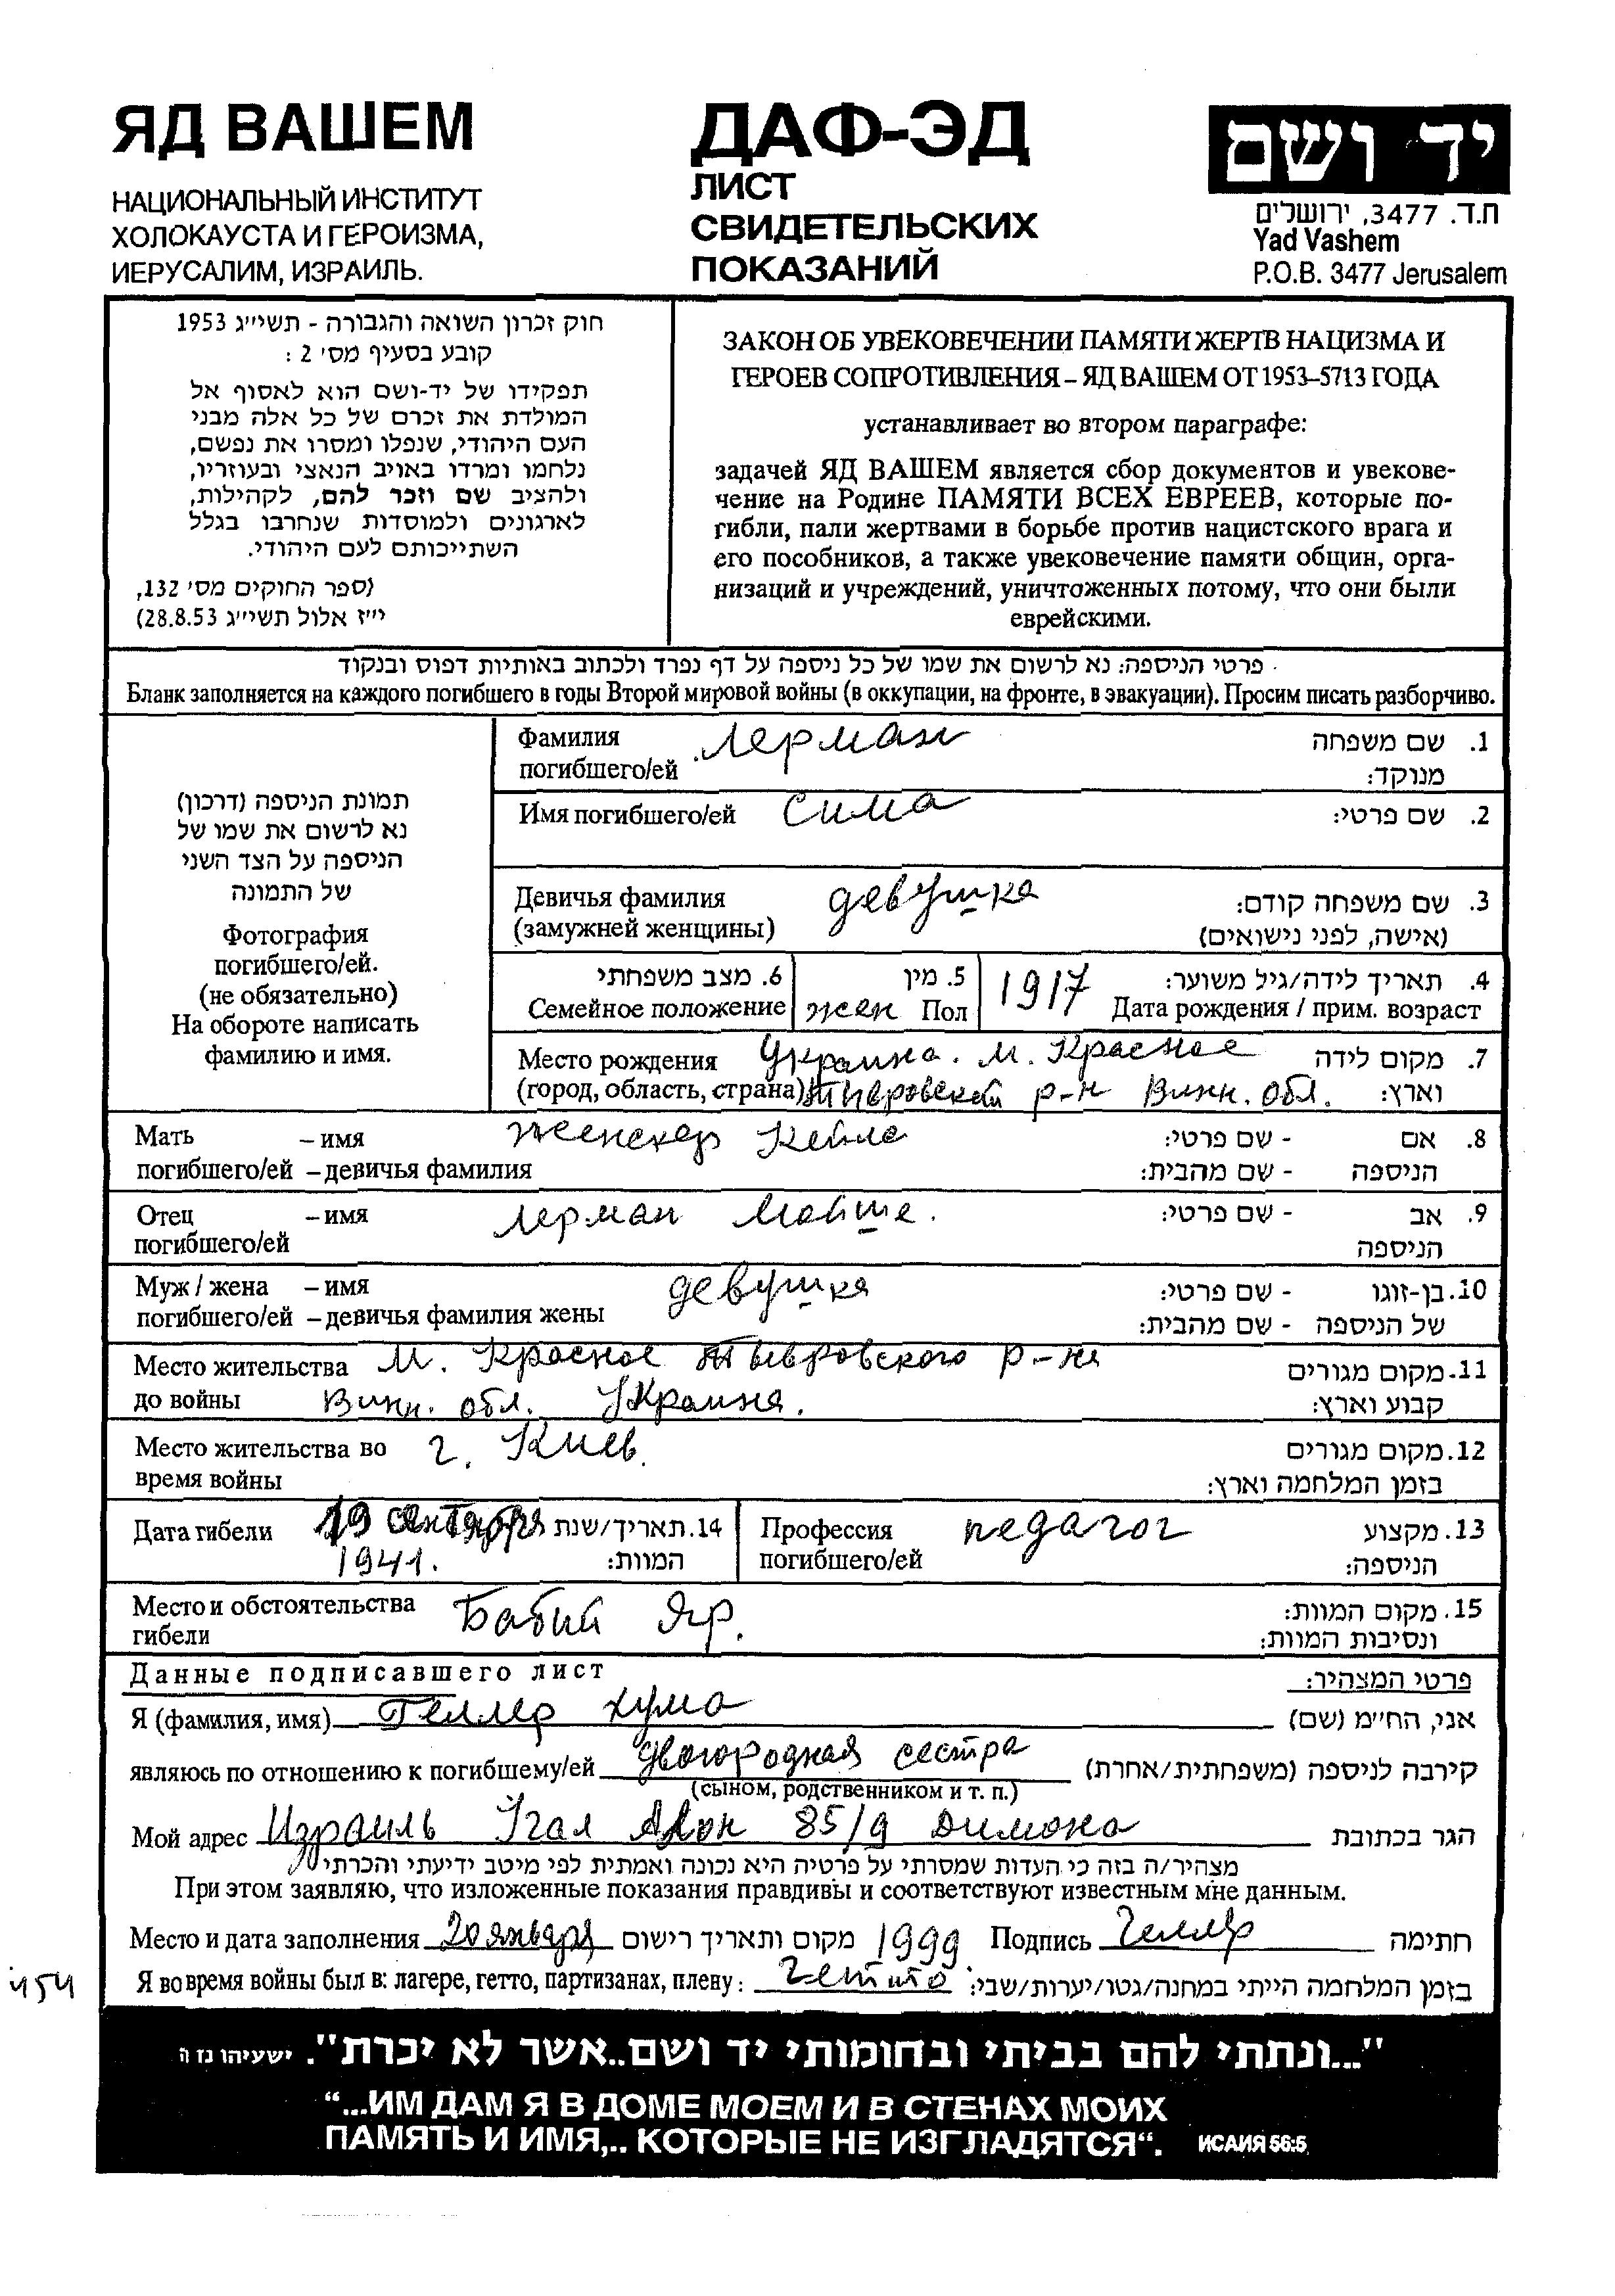 ЯД ВАШЕМ
НАЦИОНАЛЬНЫЙ ИНСТИТУТ
ХОЛОКАУСТА И ГЕРОИЗМА,
ИЕРУСАЛИМ, ИЗРАИЛЬ.
ДАФ-ЭД
ЛИСТ
СВИДЕТЕЛЬСКИХ
ПОКАЗАНИЙ
יד ושם
ת.ד. 3477, ירושלים
Yad Vashem
P.O.B. 3477 Jerusalem
חוק זכרון השואה והגבורה - תשי״ג 1953
קובע בסעיף מס' 2 :
תפקידו של יד-ושם הוא לאסוף אל
המולדת את זכרם של כל אלה מבני
העם היהודי, שנפלו ומסרו את נפשם,
נלחמו ומרדו באויב הנאצי ובעוזריו,
ולהציב שם וזכר להם, לקהילות,
לארגונים ולמוסדות שנחרבו בגלל
השתייכותם לעם היהודי.
(ספר החוקים מס' 132,
י״ז אלול תשי״ג 28.8.53)
ЗАКОН ОБ УВЕКОВЕЧЕНИИ ПАМЯТИ ЖЕРТВ НАЦИЗМА И
ГЕРОЕВ СОПРОТИВЛЕНИЯ – ЯД ВАШЕМ ОТ 1953–5713 ГОДА
устанавливает во втором параграфе:
задачей ЯД ВАШЕМ является сбор документов и увекове-
чение на Родине ПАМЯТИ ВСЕХ ЕВРЕЕВ, которые по-
гибли, пали жертвами в борьбе против нацистского врага и
его пособников, а также увековечение памяти общин, орга-
низаций и учреждений, уничтоженных потому, что они были
еврейскими.
פרטי הניספה: נא לרשום את שמו של כל ניספה על דף נפרד ולכתוב באותיות דפוס ובנקוד
Бланк заполняется на каждого погибшего в годы Второй мировой войны (в оккупации, на фронте, в эвакуации). Просим писать разборчиво.
תמונת הניספה (דרכון)
נא לרשום את שמו של
הניספה על הצד השני
של התמונה
Фотография
погибшего/ей.
(не обязательно)
На обороте написать
фамилию и имя.
Фамилия Лерман 1. שם משפחה
погибшего/ей מנוקד:
Имя погибшего/ей Сима 2. שם פרטי:
Девичья фамилия девушка 3. שם משפחה קודם:
(замужней женщины) (אישה, לפני נישואים)
6. מצב משפחתי 5. מין 1917 4. תאריך לידה/גיל משוער:
Семейное положение жен Пол Дата рождения / прим. возраст
Место рождения Украина. м. Красное 7. מקום לידה
(город, область, страна) Тывровский р-н Винн. обл. וארץ:
Мать – имя Женскер Кейла 8. אם - שם פרטי:
погибшего/ей – девичья фамилия הניספה - שם מהבית:
Отец – имя Лерман Мойше. 9. אב - שם פרטי:
погибшего/ей הניספה
Муж / жена – имя девушка 10. בן-זוגו - שם פרטי:
погибшего/ей – девичья фамилия жены של הניספה - שם מהבית:
Место жительства м. Красное Тывровского р-на 11. מקום מגורים
до войны Винн. обл. Украина. קבוע וארץ:
Место жительства во г. Киев. 12. מקום מגורים
время войны בזמן המלחמה וארץ:
Дата гибели 19 сентября 14. תאריך/שנת Профессия педагог 13. מקצוע
1941. המוות: погибшего/ей הניספה:
Место и обстоятельства Бабий Яр. 15. מקום המוות:
гибели ונסיבות המוות:
Данные подписавшего лист פרטי המצהיר:
Я (фамилия, имя) Геллер Хума אני, הח״מ (שם)
являюсь по отношению к погибшему/ей двогородная сестра קירבה לניספה (משפחתית/אחרת)
(сыном, родственником и т. п.)
Мой адрес Израиль Игал Алон 85/9 Димона הגר בכתובת
מצהיר/ה בזה כי העדות שמסרתי על פרטיה היא נכונה ואמתית לפי מיטב ידיעתי והכרתי
При этом заявляю, что изложенные показания правдивы и соответствуют известным мне данным.
Место и дата заполнения 20 января מקום ותאריך רישום 1999 Подпись Геллер חתימה
Я во время войны был в: лагере, гетто, партизанах, плену: Гетто בזמן המלחמה הייתי במחנה/גטו/יערות/שבי:
"...ונתתי להם בביתי ובחומותי יד ושם..אשר לא יכרת". ישעיהו נז ה
“...ИМ ДАМ Я В ДОМЕ МОЕМ И В СТЕНАХ МОИХ
ПАМЯТЬ И ИМЯ,.. КОТОРЫЕ НЕ ИЗГЛАДЯТСЯ“. ИСАИЯ 56:5